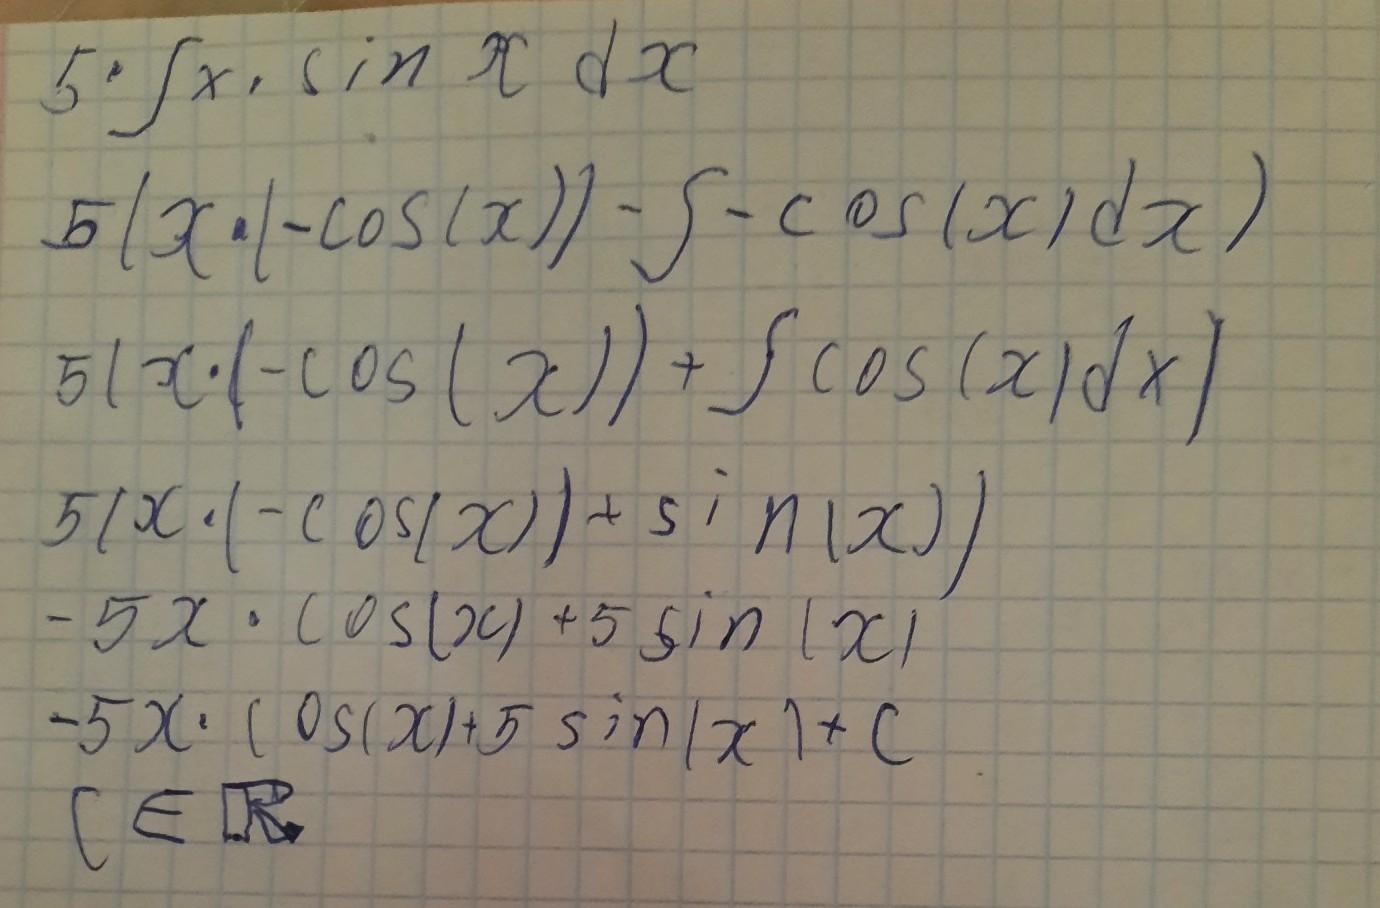 5·∫x·sin x dx
5(x·(-cos(x))-∫-cos(x)dx)
5(x·(-cos(x))+∫cos(x)dx)
5(x·(-cos(x))+sin(x))
-5x·cos(x)+5sin(x)
-5x·cos(x)+5sin(x)+C
C∈ℝ